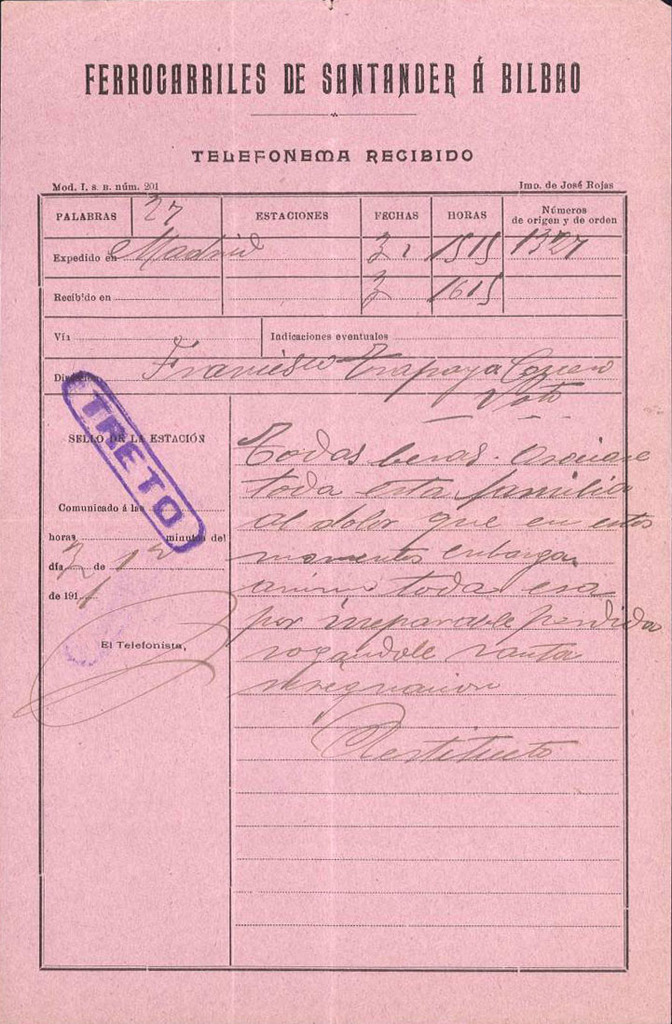 FERROCARRILES DE SANTANDER Á BILBAO
TELEFONEMA RECIBIDO
Mod. I. S. B. núm. 201 Imp. de José Rojas
PALABRAS 27 ESTACIONES FECHAS HORAS Números de origen y de orden
Expedido en Madrid 1515 1327
Recibido en 1615
Vía Indicaciones eventuales
Francisco
Voto
SELLO DE LA ESTACIÓN
TRETO
Comunicado á las
horas minutos del
día 2 de 12
de 1911
El Telefonista,
Todas veras
toda esta familia
al dolor que en estos
momentos embarga
animo toda esa
por irreparable perdida
rogandole santa
resegnacion
Restituto